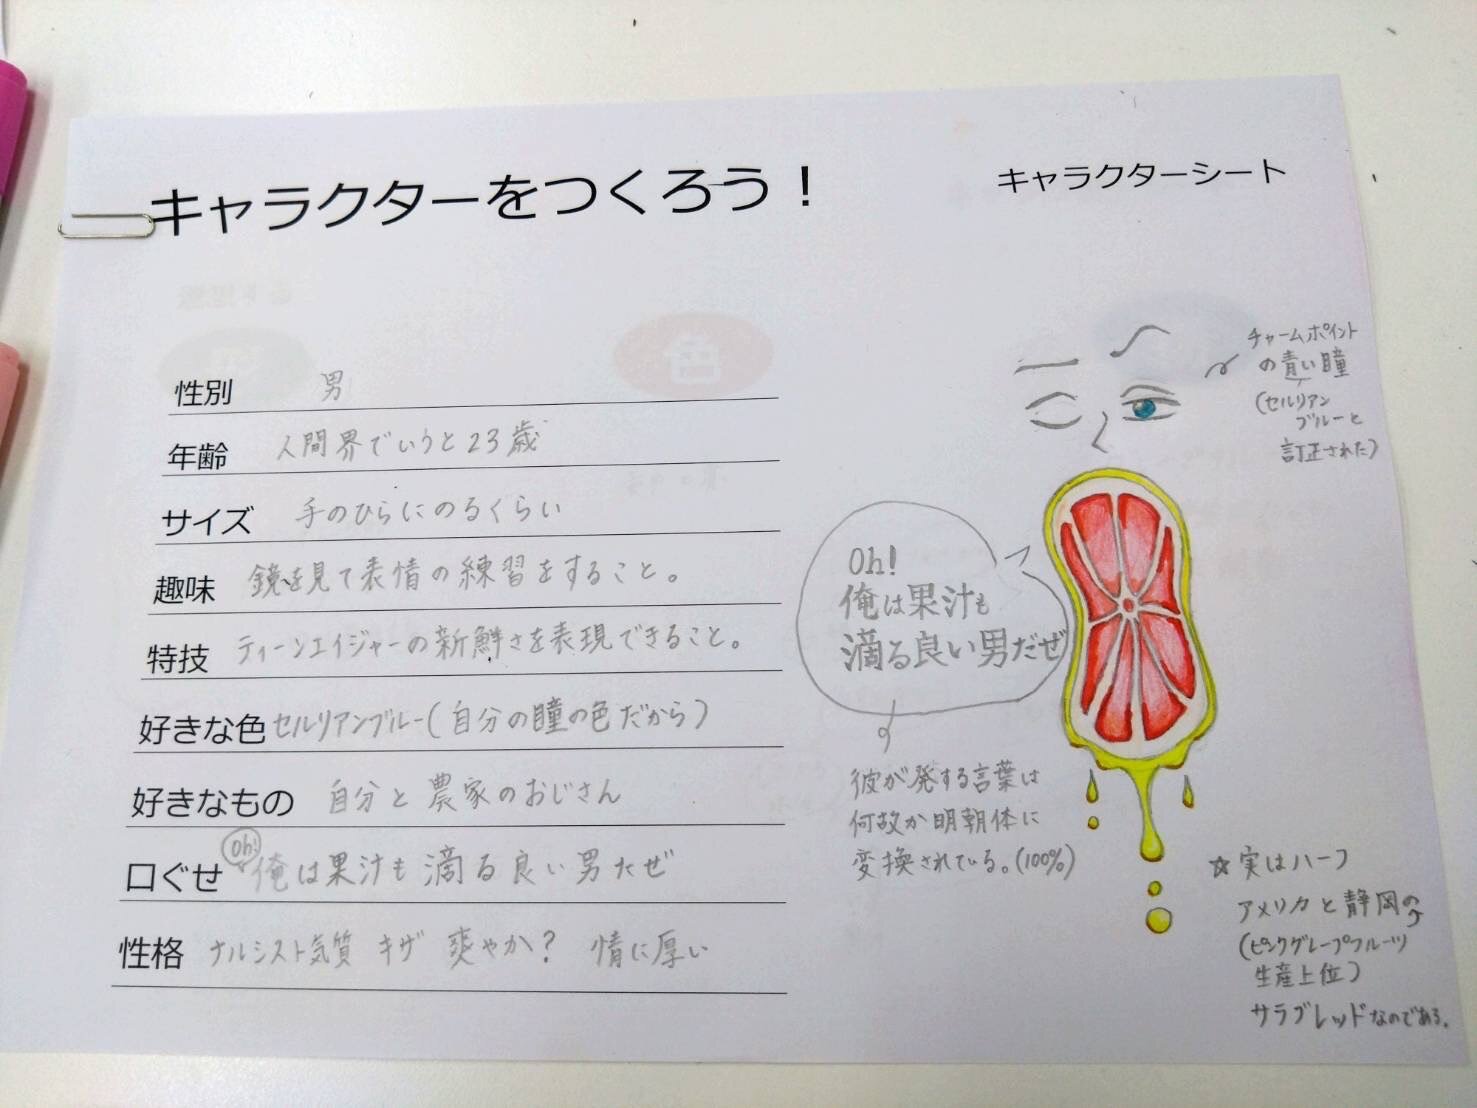 キャラクターをつくろう！
キャラクターシート
性別 男
年齢 人間界でいうと23歳
サイズ 手のひらにのるくらい
趣味 鏡を見て表情の練習をすること。
特技 ティーンエイジャーの新鮮さを表現できること。
好きな色 セルリアンブルー(自分の瞳の色だから)
好きなもの 自分と農家のおじさん
口ぐせ Oh! 俺は果汁も滴る良い男だぜ
性格 ナルシスト気質 キザ 爽やか? 情に厚い
チャームポイント
の青い瞳
(セルリアン
ブルーと
訂正された)
Oh!
俺は果汁も
滴る良い男だぜ
彼が発する言葉は
何故か明朝体に
変換されている。(100%)
☆実はハーフ
アメリカと静岡の
(ピンクグレープフルーツ
生産上位)
サラブレッドなのである。
色